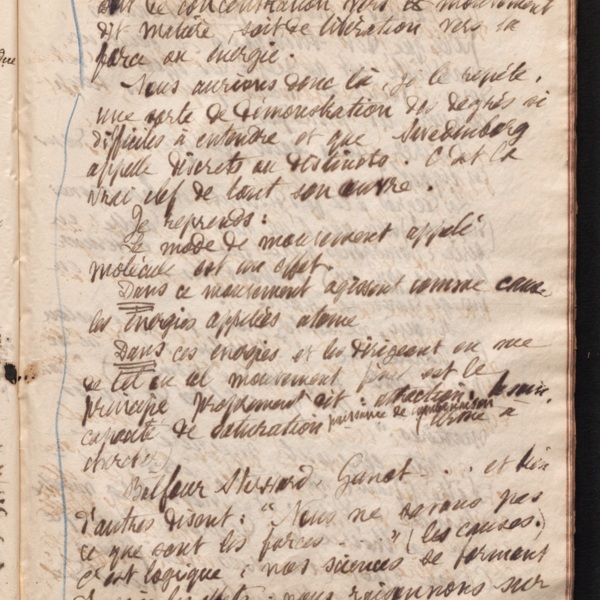 soit de concentration vers le mouvement
dit matière, soit de libération vers la
force ou énergie.
Nous aurions donc là, je le répète,
une sorte de démonstration des degrés si
difficiles à entendre et que Swedenborg
appelle discrets ou distincts. C'est la
vrai clef de tout son œuvre.
Je reprends:
Le mode de mouvement appelé
molécule est un effet.
Dans ce mouvement agissent comme cause
les Énergies appelées atome
Dans ces énergies et les dirigeant en vue
de tel ou tel mouvement est le
principe proprement dit: attraction,
capacité de saturation puissance de combinaison à
Balfour Stewart, Ganot... et bien
d'autres disent: "Nous ne savons pas
ce que sont les forces..." (les causes.)
C'est logique; nos sciences se forment
nous raisonnons sur